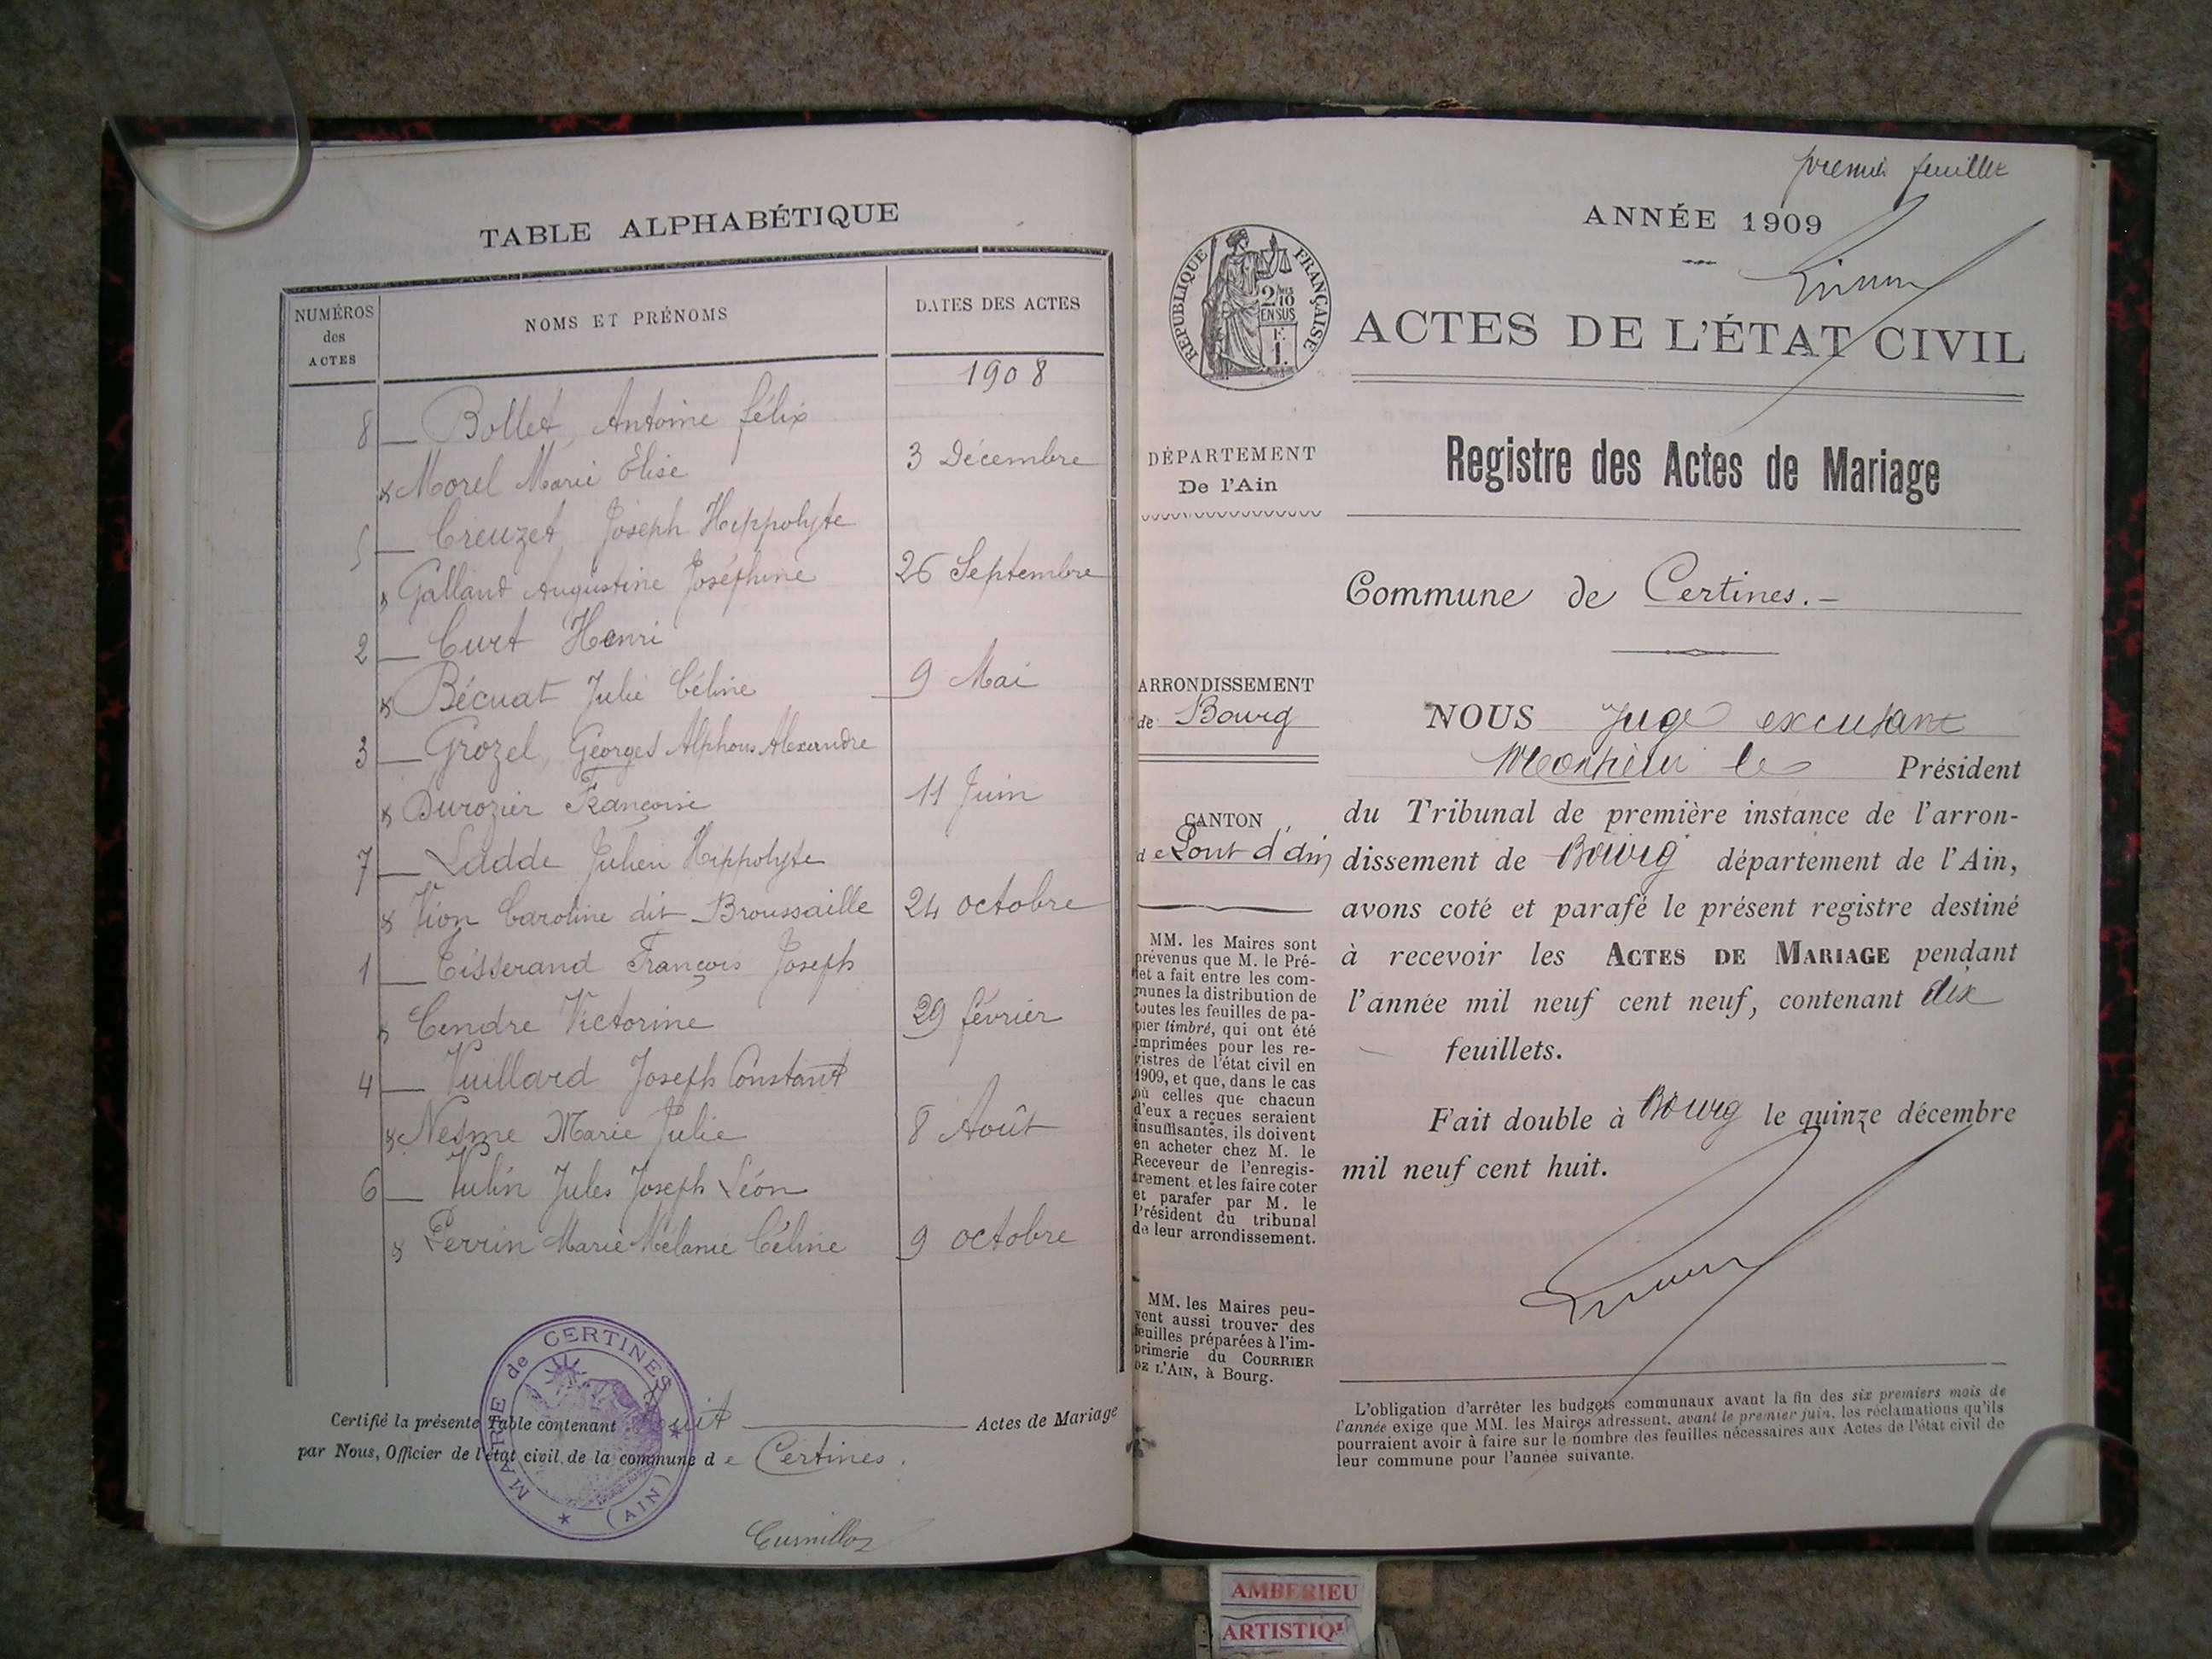 TABLE ALPHABÉTIQUE
NUMÉROS
des
ACTES
NOMS ET PRÉNOMS
DATES DES ACTES
1908
8 — Bollet, Antoine félix
& Morel Marie Elise 3 Décembre
5 — Creuzet, Joseph Hippolyte
& Galland Augustine Joséphine 26 Septembre
2 — Curt Henri
& Bécuat Julie Céline 9 Mai
3 — Grozel, Georges Alphons Alexandre
& Durozier Françoise 11 Juin
7 — Ladde Julien Hippolyte
& Vion Caroline dit Broussaille 24 octobre
1 — Tisserand François Joseph
& Cendre Victorine 29 février
4 — Vuillard Joseph Constant
& Nesme Marie Julie 8 Août
6 — Vulin Jules Joseph Léon
& Perrin Marie Mélanie Céline 9 octobre
MAIRIE de CERTINES
(AIN)
Certifié la présente Table contenant huit Actes de Mariage
par Nous, Officier de l'état civil de la commune de Certines.
premier feuillet
ANNÉE 1909
RÉPUBLIQUE FRANÇAISE
2/10
EN SUS
F.
1.
ACTES DE L'ÉTAT CIVIL
DÉPARTEMENT
De l'Ain
Registre des Actes de Mariage
Commune de Certines.-
ARRONDISSEMENT
de Bourg
CANTON
de Pont d'ain
MM. les Maires sont
prévenus que M. le Pré-
fet a fait entre les com-
munes la distribution de
toutes les feuilles de pa-
pier timbré, qui ont été
imprimées pour les re-
gistres de l'état civil en
1909, et que, dans le cas
où celles que chacun
d'eux a reçues seraient
insuffisantes, ils doivent
en acheter chez M. le
Receveur de l'enregis-
trement et les faire coter
et parafer par M. le
Président du tribunal
de leur arrondissement.
MM. les Maires peu-
vent aussi trouver des
feuilles préparées à l'im-
primerie du COURRIER
DE L'AIN, à Bourg.
NOUS Juge excusant
Monsieur le Président
du Tribunal de première instance de l'arron-
dissement de Bourg département de l'Ain,
avons coté et parafé le présent registre destiné
à recevoir les ACTES DE MARIAGE pendant
l'année mil neuf cent neuf, contenant dix
feuillets.
Fait double à Bourg le quinze décembre
mil neuf cent huit.
L'obligation d'arrêter les budgets communaux avant la fin des six premiers mois de
l'année exige que MM. les Maires adressent, avant le premier juin, les réclamations qu'ils
pourraient avoir à faire sur le nombre des feuilles nécessaires aux Actes de l'état civil de
leur commune pour l'année suivante.
AMBERIEU
ARTISTIQ